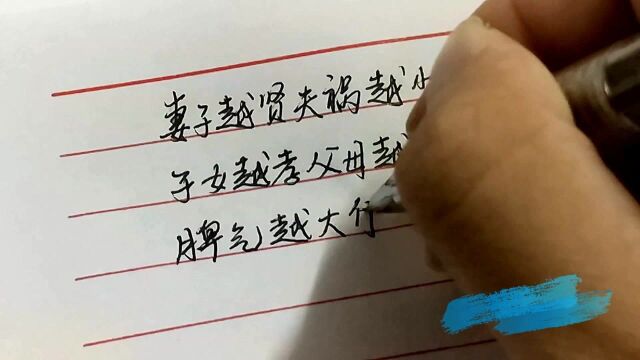 妻子越贤夫祸越小
子女越孝父母越
脾气越大行